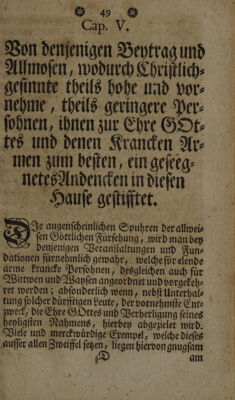 49
Cap. V.
Von denjenigen Beytrag und
Allmosen, wodurch Christlich-
gesinnte theils hohe und vor-
nehme, theils geringere Per-
sohnen, ihnen zur Ehre GOt-
tes und denen Krancken Ar-
men zum besten, ein geseeg-
netes Andencken in diesen
Hause gestifftet.
Die augenscheinlichen Spuhren der allwei-
sen Göttlichen Fürsehung, wird man bey
denjenigen Veranstaltungen und Fun-
dationen fürnehmlich gewahr, welche für elende
arme krancke Persohnen, desgleichen auch für
Wittwen und Waysen angeordnet und vorgekeh-
ret werden; absonderlich wenn, nebst Unterhal-
tung solcher dürfftigen Leute, der vornehmste Ent-
zweck, die Ehre GOttes und Verherligung seines
heyligsten Nahmens, hierbey abgezielet wird.
Viele und merckwürdige Exempel, welche dieses
ausser allen Zweiffel setzen, liegen hiervon gnugsam
D
am